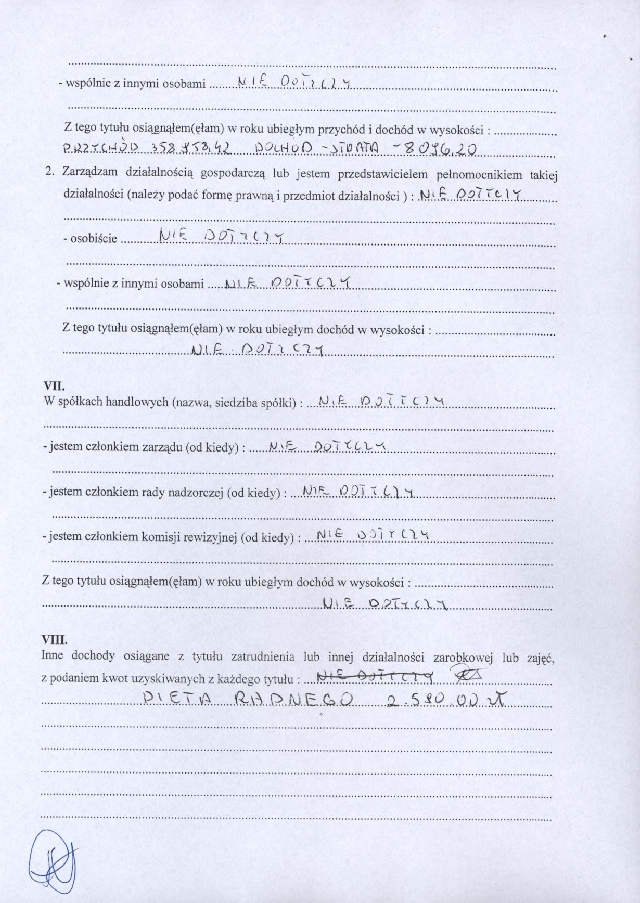 - wspólnie z innymi osobami ....NIE DOTYCZY....
Z tego tytułu osiągnąłem(ęłam) w roku ubiegłym przychód i dochód w wysokości : ....
PRZYCHÓD 358.453,42 DOCHÓD - STRATA - 8096.20
2. Zarządzam działalnością gospodarczą lub jestem przedstawicielem pełnomocnikiem takiej
działalności (należy podać formę prawną i przedmiot działalności ) : NIE DOTYCZY
- osobiście ....NIE DOTYCZY....
- wspólnie z innymi osobami ....NIE DOTYCZY....
Z tego tytułu osiągnąłem(ęłam) w roku ubiegłym dochód w wysokości : ....
NIE DOTYCZY
VII.
W spółkach handlowych (nazwa, siedziba spółki) : ...NIE DOTYCZY....
- jestem członkiem zarządu (od kiedy) : ....NIE DOTYCZY....
- jestem członkiem rady nadzorczej (od kiedy) : ...NIE DOTYCZY....
- jestem członkiem komisji rewizyjnej (od kiedy) : ...NIE DOTYCZY....
Z tego tytułu osiągnąłem(ęłam) w roku ubiegłym dochód w wysokości : ....
NIE DOTYCZY
VIII.
Inne dochody osiągane z tytułu zatrudnienia lub innej działalności zarobkowej lub zajęć,
z podaniem kwot uzyskiwanych z każdego tytułu : ...NIE DOTYCZY
DIETA RADNEGO 2.590.00 zł